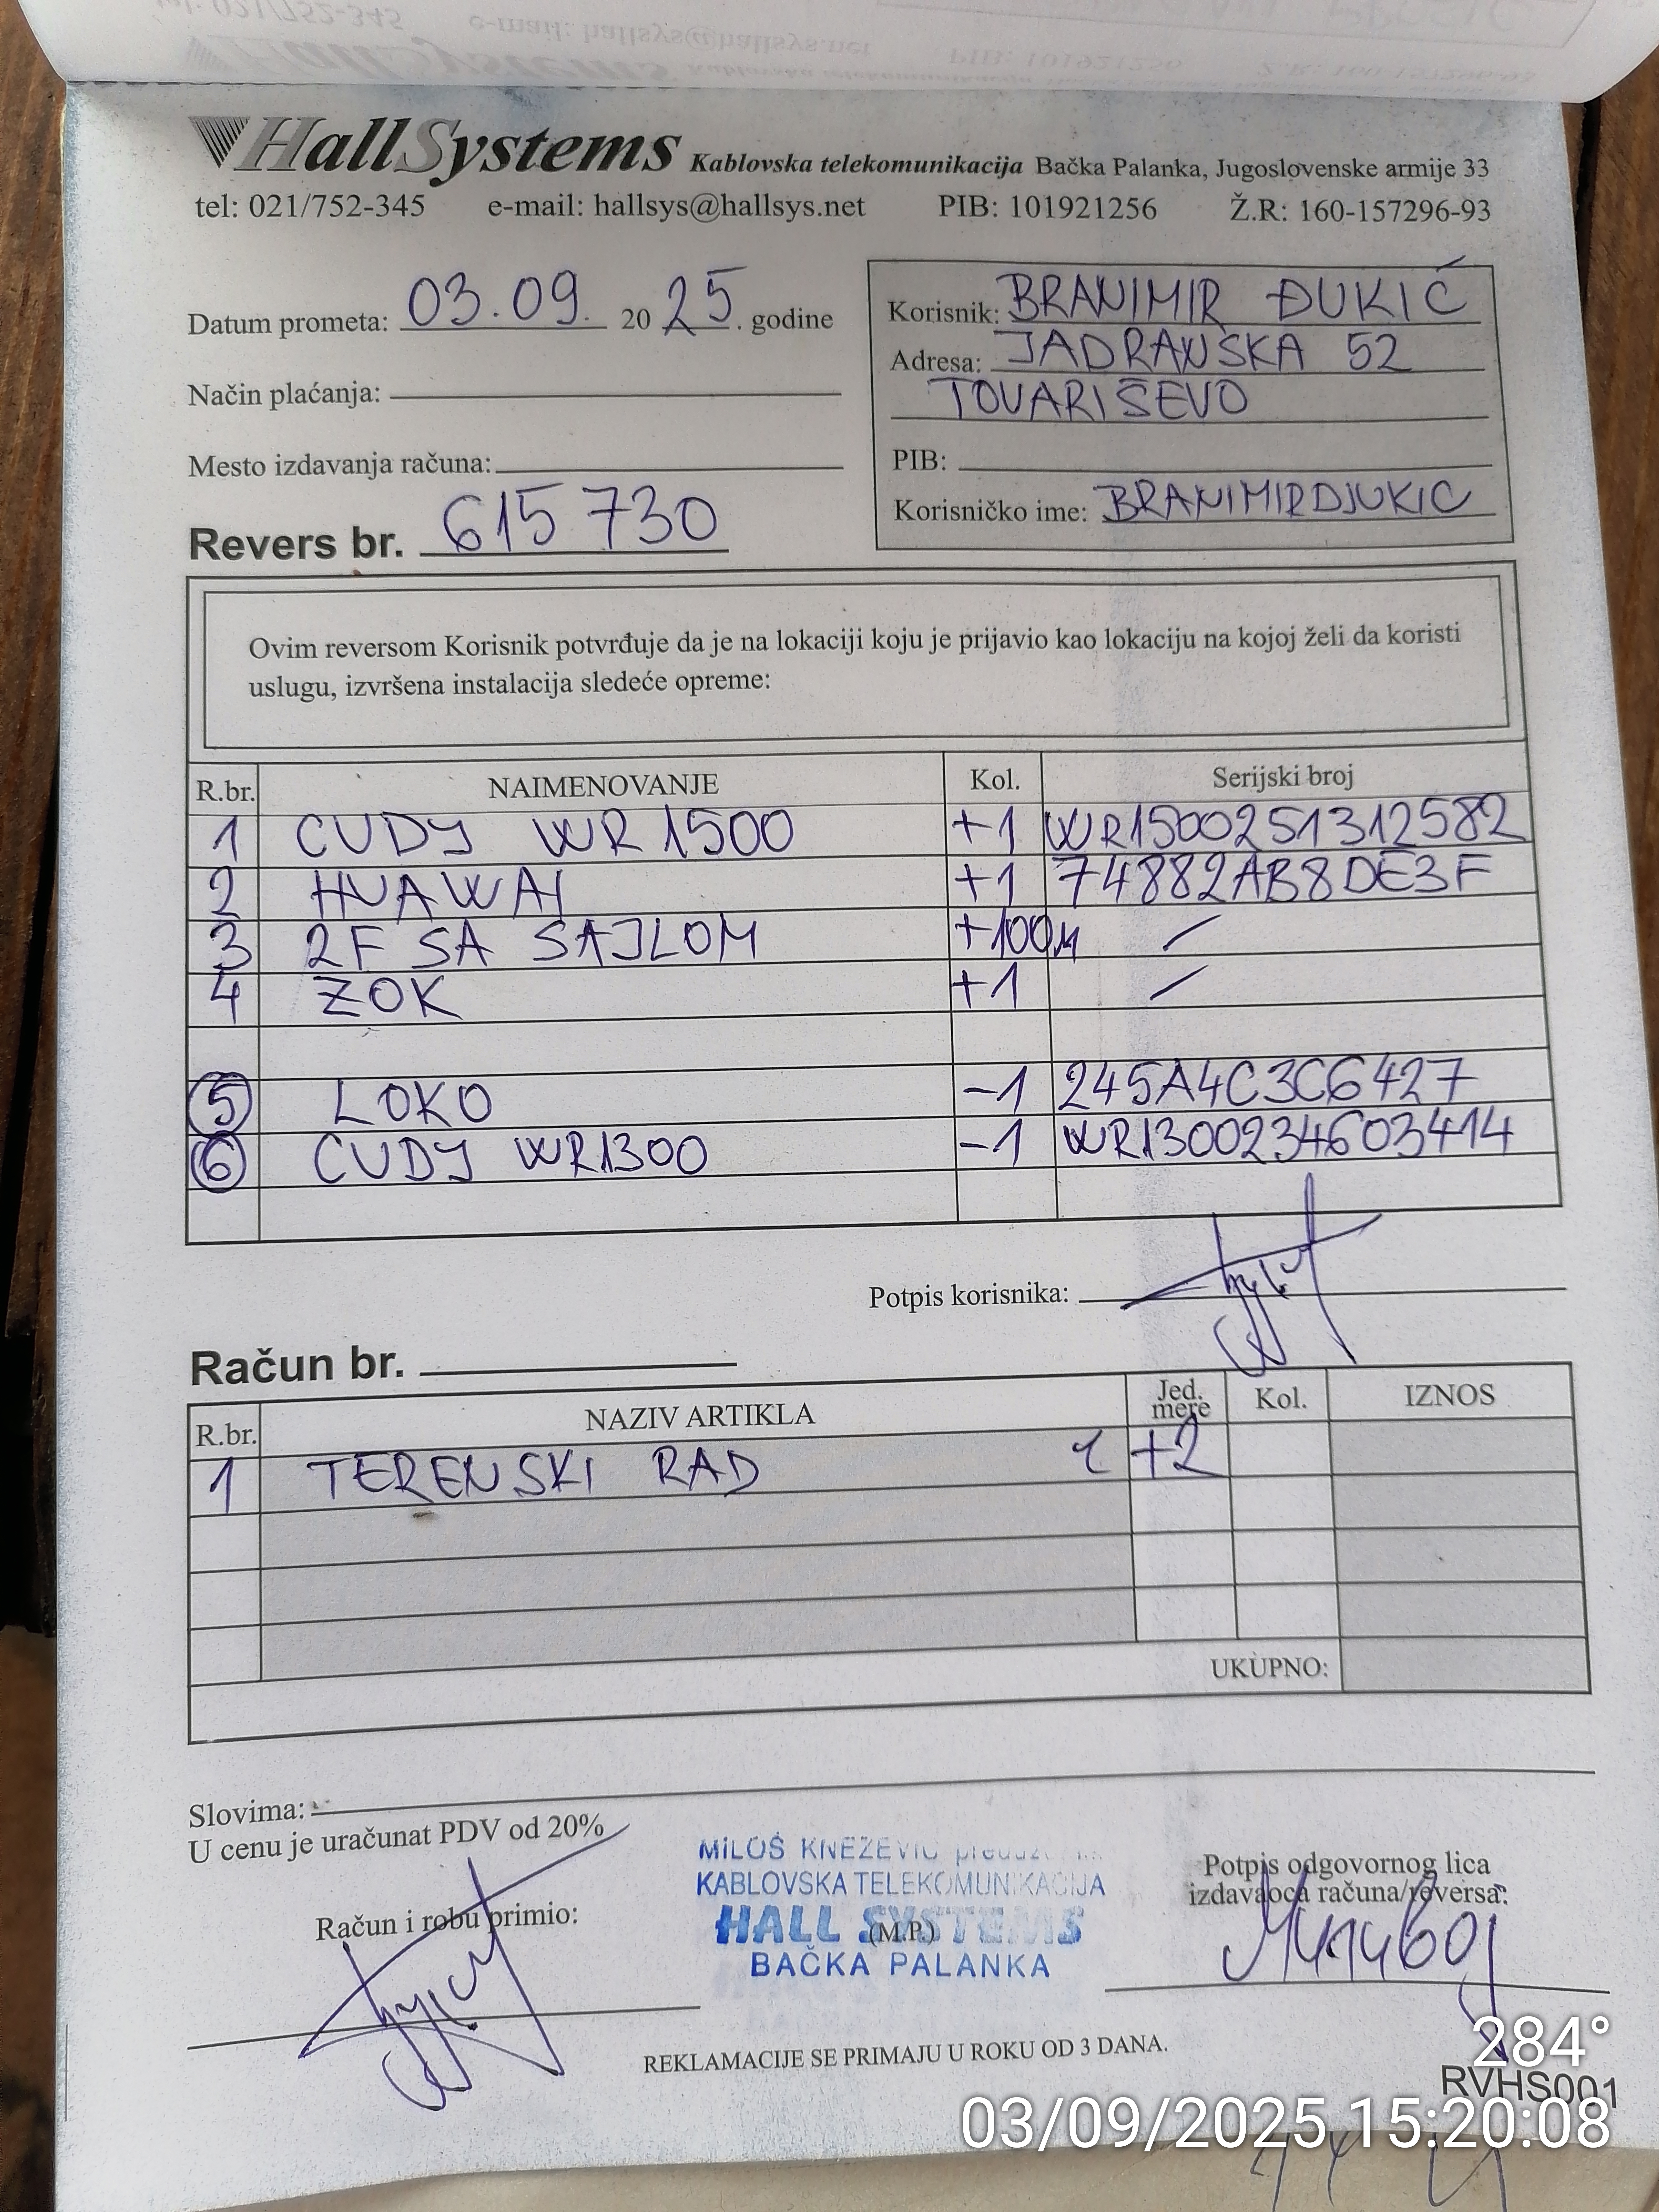 HallSystems Kablovska telekomunikacija Bačka Palanka, Jugoslovenske armije 33
tel: 021/752-345 e-mail: hallsys@hallsys.net PIB: 101921256 Ž.R: 160-157296-93
Datum prometa: 03.09. 20 25. godine
Način plaćanja:
Mesto izdavanja računa:
Revers br. 615730
Korisnik: BRANIMIR ĐUKIĆ
Adresa: JADRANSKA 52
TOVARIŠEVO
PIB:
Korisničko ime: BRANIMIRDJUKIC
Ovim reversom Korisnik potvrđuje da je na lokaciji koju je prijavio kao lokaciju na kojoj želi da koristi
uslugu, izvršena instalacija sledeće opreme:
R.br. NAIMENOVANJE Kol. Serijski broj
1 CUDY WR 1500 +1 WR1500251312582
2 HUAWAI +1 74882AB8DE3F
3 2F SA SAJLOM +100M /
4 ZOK +1 /
5 LOKO -1 245A4C3C6427
6 CUDY WR1300 -1 WR1300234603414
Potpis korisnika:
Račun br.
R.br. NAZIV ARTIKLA Jed. mere Kol. IZNOS
1 TERENSKI RAD +2
UKUPNO:
Slovima:
U cenu je uračunat PDV od 20%
Račun i robu primio:
MILOŠ KNEŽEVIĆ
KABLOVSKA TELEKOMUNIKACIJA
HALL SYSTEMS
(M.P.)
BAČKA PALANKA
Potpis odgovornog lica
izdavaoca računa/reversa:
REKLAMACIJE SE PRIMAJU U ROKU OD 3 DANA.
284°
RVHS001
03/09/2025 15:20:08